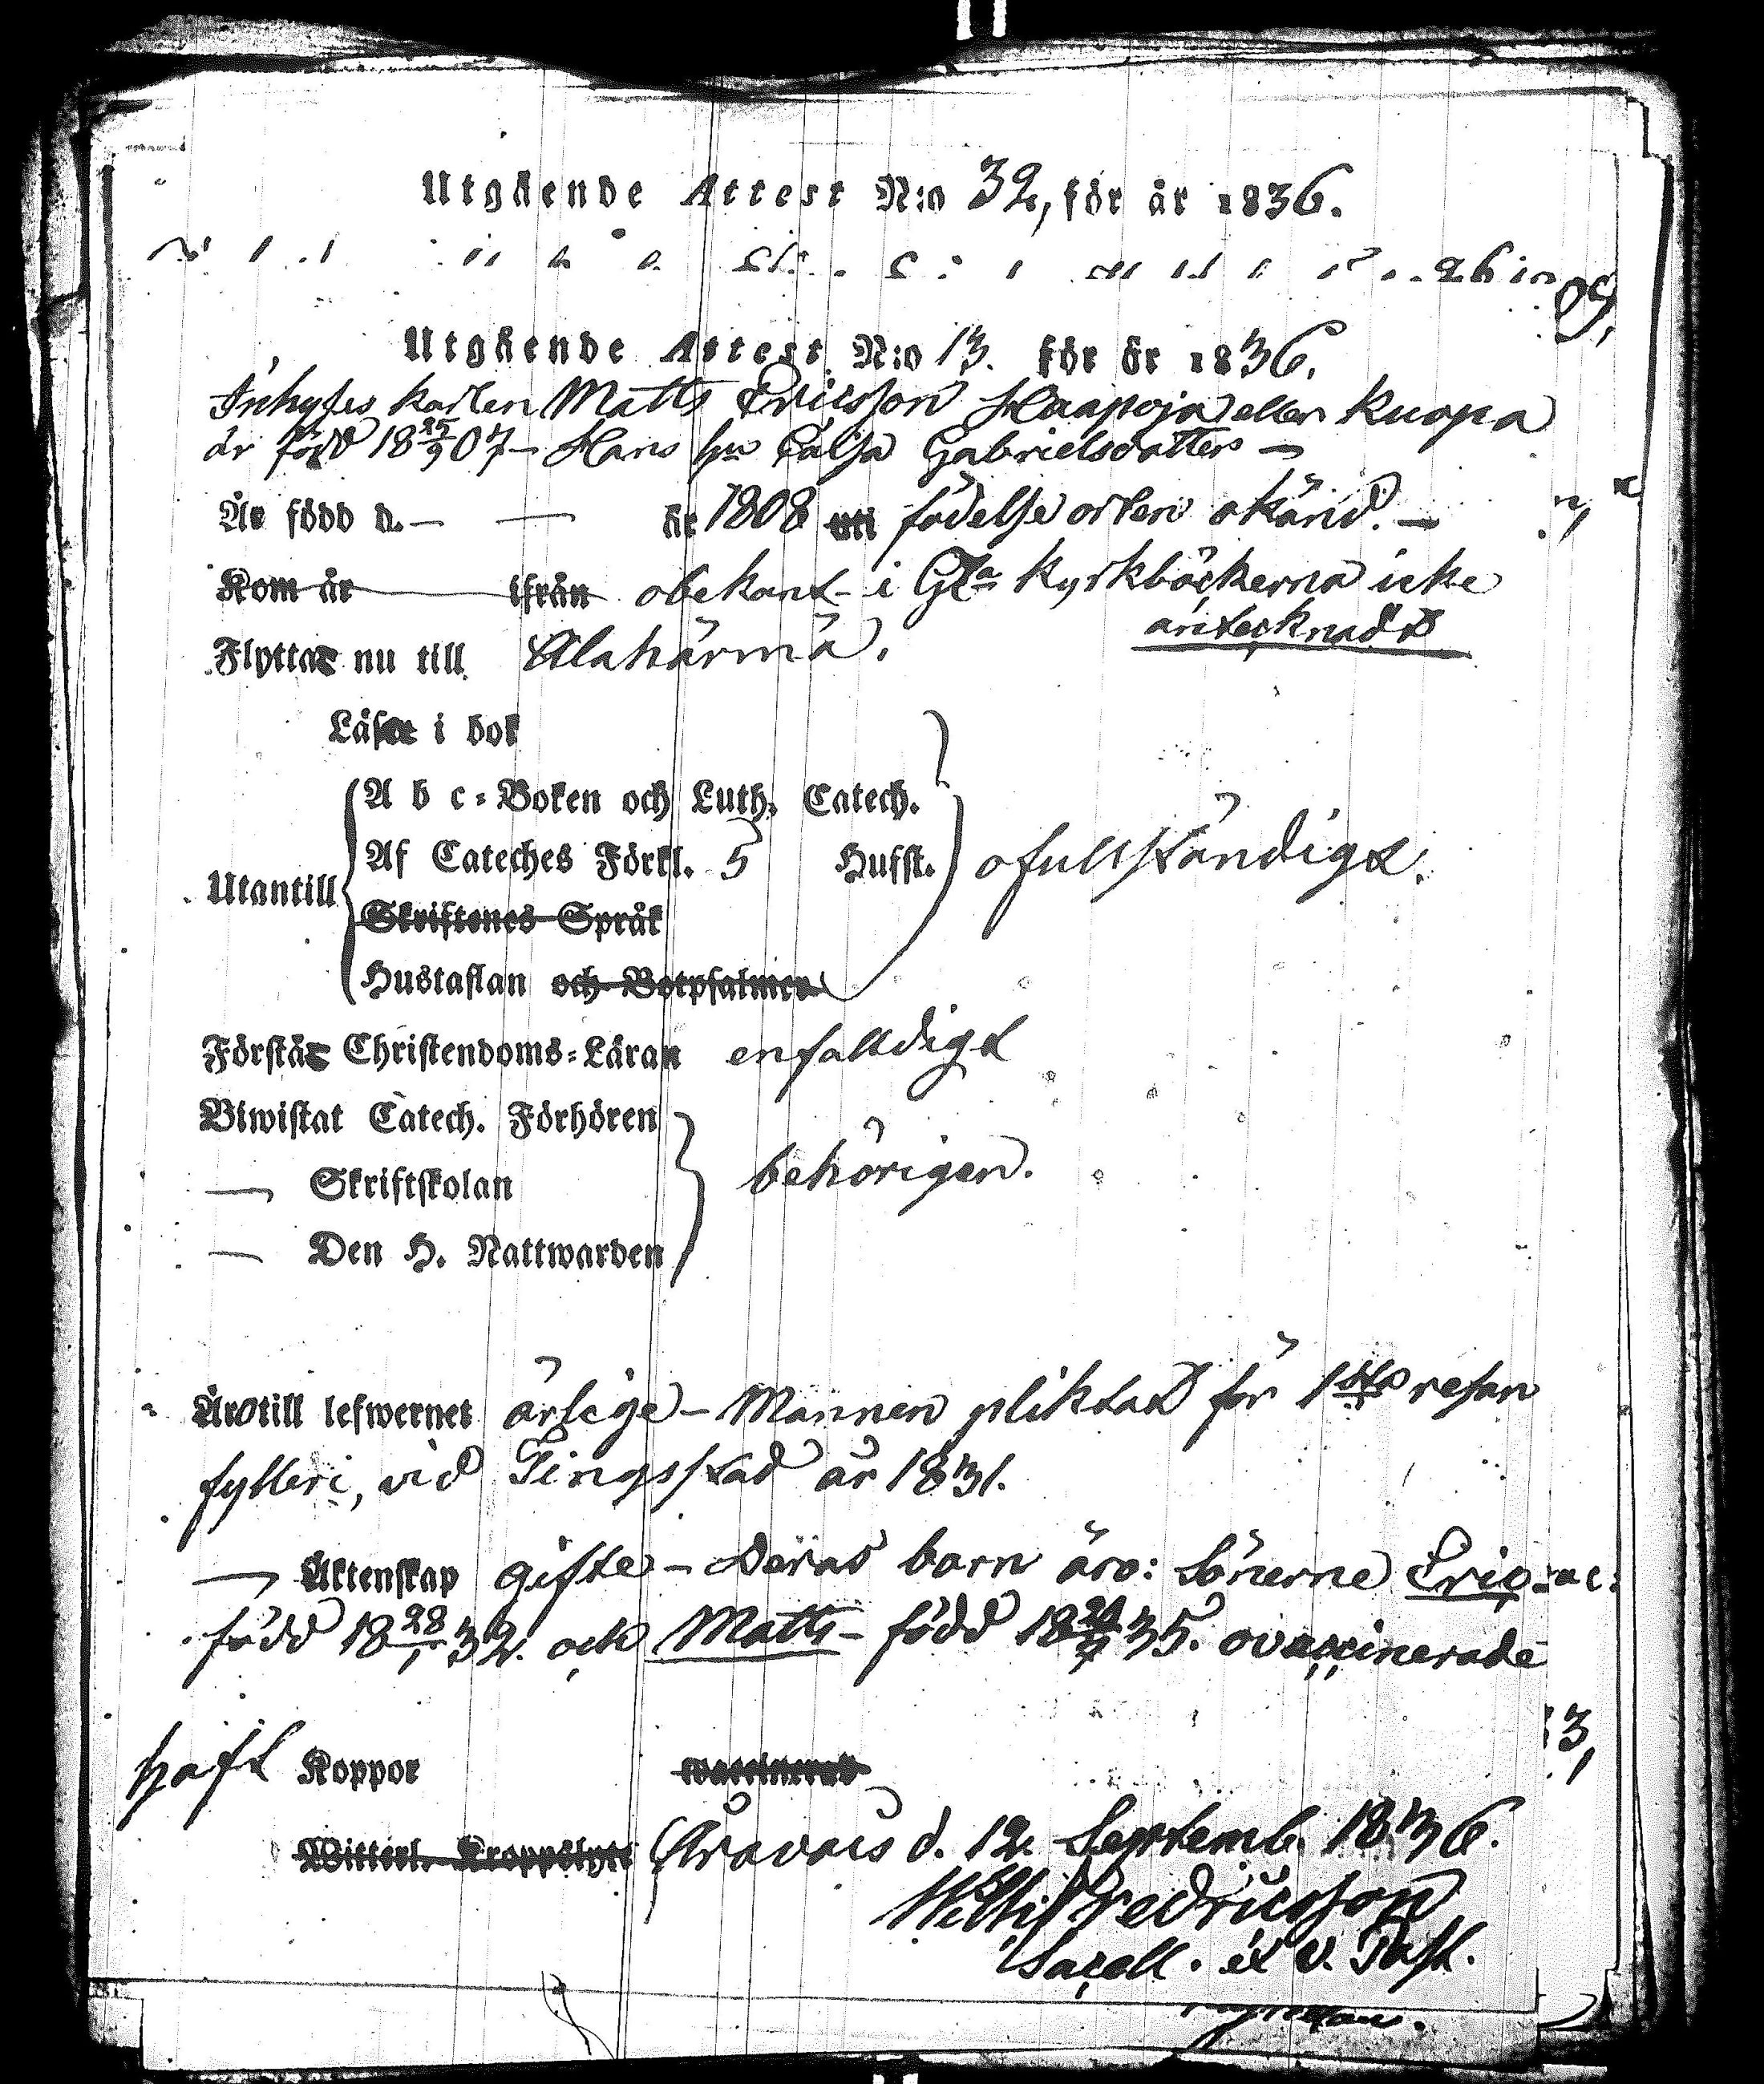 Utgående Attest N:o 32, för år 1836.
Utgående Attest N:o 13. för år 1836.
Inhyses karlen Matts Ericsson Haapoja eller Kuopa
är född 18 25/9 07 – Hans hu Caisa Gabrielsdotter –
Är född d. — — år 1808 uti födelse orten okänd. –
Kom år ifrån obekant – i Gla Kyrkböckerna icke
antecknadt
Flyttar nu till Alahärmä.
Läser i bok
A b c-Boken och Luth. Catech.
Af Cateches Förkl. 5 Hufst. ofullständigt.
Utantill
Skriftenes Språk
Hustaflan och Botpsalmer
Förstår Christendoms-Läran enfaldigt
Biwistat Catech. Förhören
— Skriftskolan behörigen.
— Den H. Nattwarden
Äro till lefwernet ärlige – Mannen pliktad för 1sta resan
fylleri, vid Tingsstad år 1831.
— Äktenskap gifte – Deras barn äro: Sönerne Eric
född 18 28/1 32. och Matts – född 18 24/7 35. ovaccinerade
haft Koppor vaccinerad
Witterl. Kroppslyte Oravais d. 12 Septemb. 1836.
Fredricsson
Sacell. et V. Past.